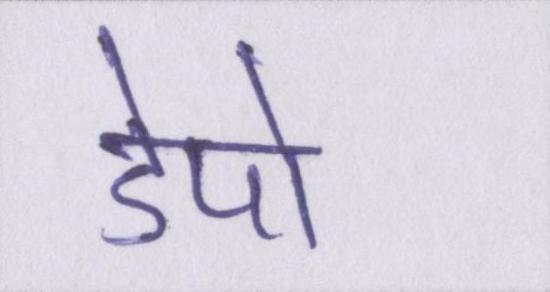 डेपो